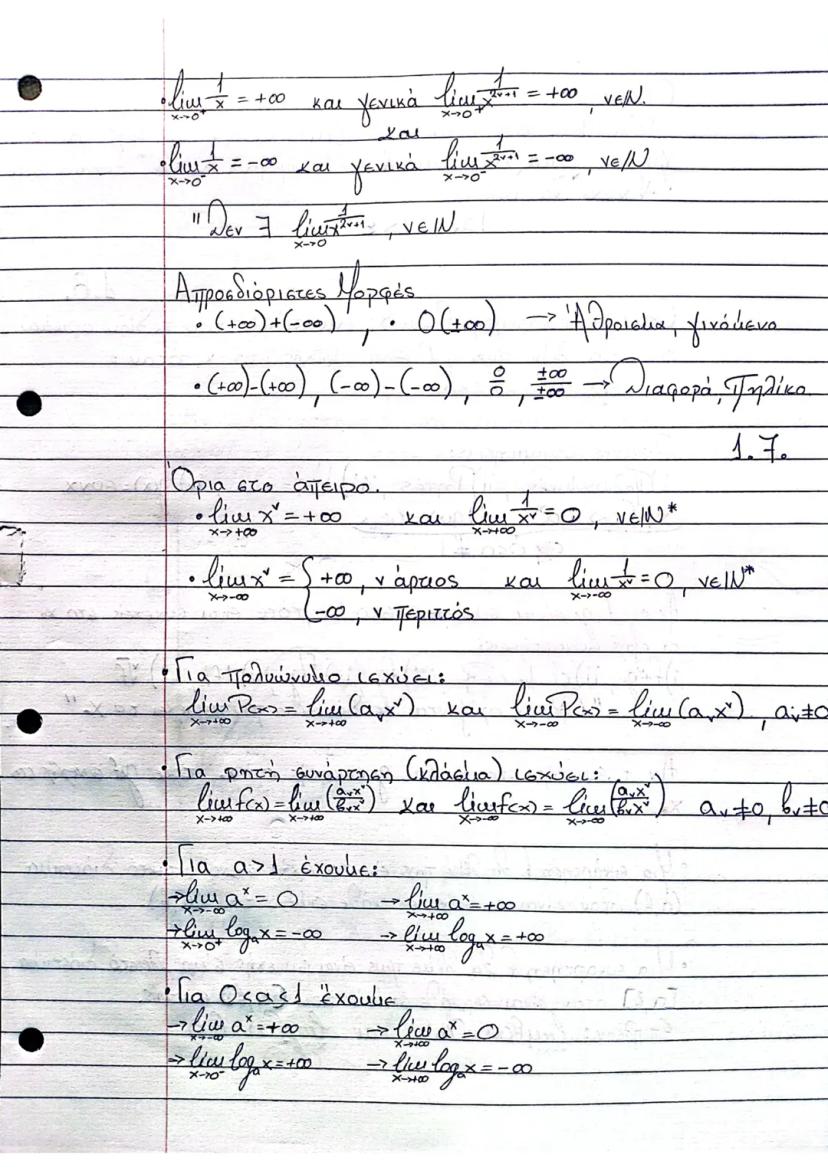 • lim_{x→0⁺} 1/x = +∞ και γενικά lim_{x→0⁺} 1/x^{2ν+1} = +∞, ν∈ℕ.
και
• lim_{x→0⁻} 1/x = -∞ και γενικά lim_{x→0⁻} 1/x^{2ν+1} = -∞, ν∈ℕ
"Δεν ∃ lim_{x→0} 1/x^{2ν+1}, ν∈ℕ
Απροσδιόριστες Μορφές
• (+∞)+(-∞), • 0(±∞) → Άθροισμα, γινόμενο
• (+∞)-(+∞), (-∞)-(-∞), 0/0, ±∞/±∞ → Διαφορά, Πηλίκο
1.7.
Όρια στο άπειρο.
• lim_{x→+∞} x^ν = +∞ και lim_{x→+∞} 1/x^ν = 0, ν∈ℕ*
• lim_{x→-∞} x^ν = { +∞, ν άρτιος και lim_{x→-∞} 1/x^ν = 0, ν∈ℕ*
-∞, ν περιττός
• Για πολυώνυμο ισχύει:
lim_{x→+∞} P(x) = lim_{x→+∞} (a_ν x^ν) και lim_{x→-∞} P(x) = lim_{x→-∞} (a_ν x^ν), a_ν≠0
• Για ρητή συνάρτηση (κλάσμα) ισχύει:
lim_{x→+∞} f(x) = lim_{x→+∞} (a_ν x^ν/β_ν x^ν) και lim_{x→-∞} f(x) = lim_{x→-∞} (a_ν x^ν/β_ν x^ν) a_ν≠0, β_ν≠0
• Για a>1 έχουμε:
→ lim_{x→-∞} a^x = 0 → lim_{x→+∞} a^x = +∞
→ lim_{x→0⁺} log_a x = -∞ → lim_{x→+∞} log_a x = +∞
• Για 0<a<1 έχουμε
→ lim_{x→-∞} a^x = +∞ → lim_{x→+∞} a^x = 0
→ lim_{x→0⁻} log_a x = +∞ → lim_{x→+∞} log_a x = -∞